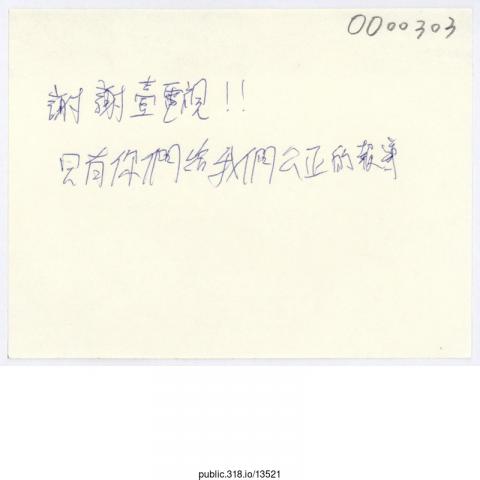 0000303
謝謝壹電視!!
只有你們給我們公正的報導
public.318.io/13521